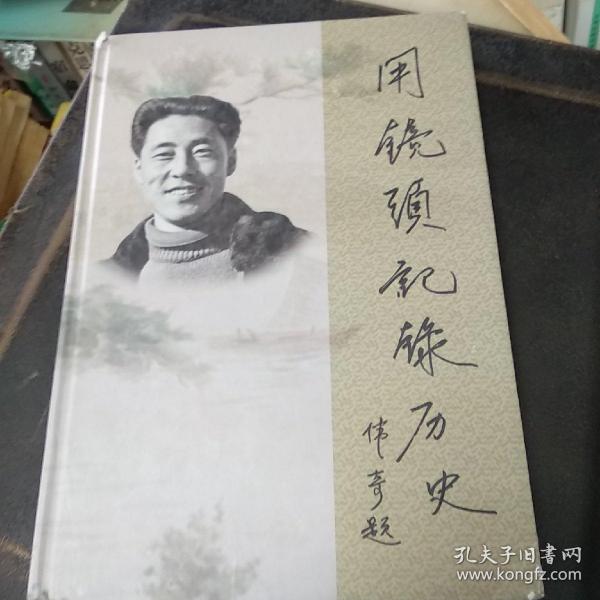 用镜頭記錄历史
伟奇题
孔夫子旧书网
www.kongfz.com